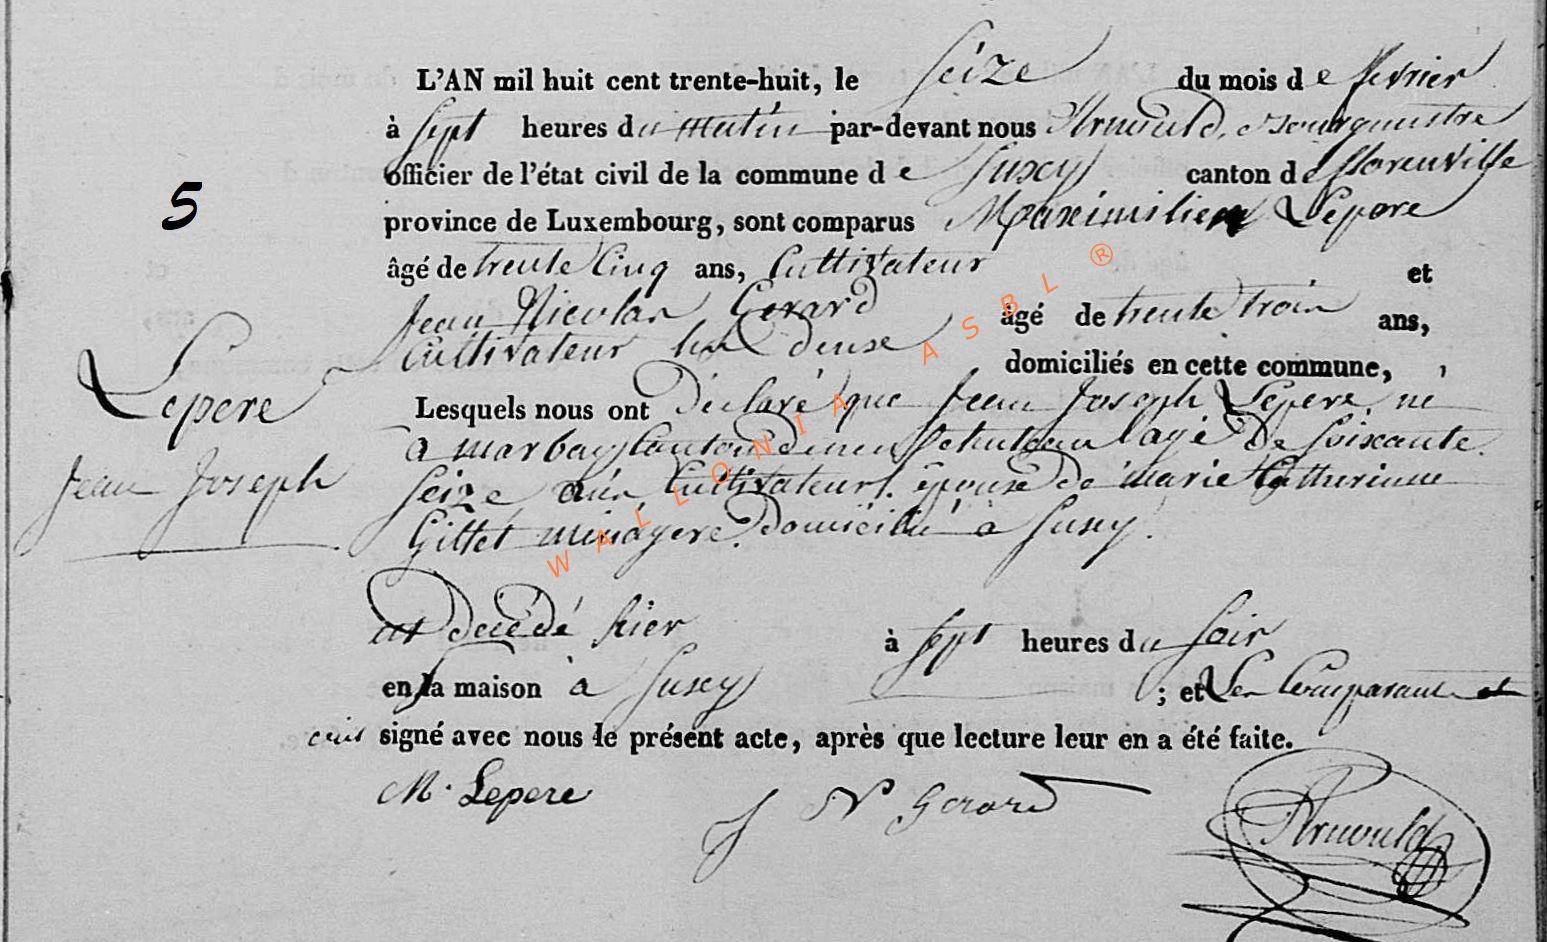 L'AN mil huit cent trente-huit, le Seize du mois de fevrier
à Sept heures du matin par-devant nous Arnould, Bourgumstre
officier de l'état civil de la commune de Suxcy canton de florenville
5
province de Luxembourg, sont comparus Maximilien Lepere
âgé de trente Cinq ans, Cultivateur et
Jean Nicolas Gerard âgé de trente trois ans,
Cultivateur deux domiciliés en cette commune,
Lepere
Jean Joseph
Lesquels nous ont Déclaré que Jean Joseph Lepere né
a marbay Canton de neufchateau agé De Soixante
Seize ans Cultivateur. épouse de marie Catherinne
Gillet ménagere. domicilié à Suxcy.
est Décédé hier à Sept heures du Soir
en sa maison à Suxcy ; et Les Comparants et
signé avec nous le présent acte, après que lecture leur en a été faite.
M. Lepere J N Gerard Arnould
WALLONIA ASBL ®